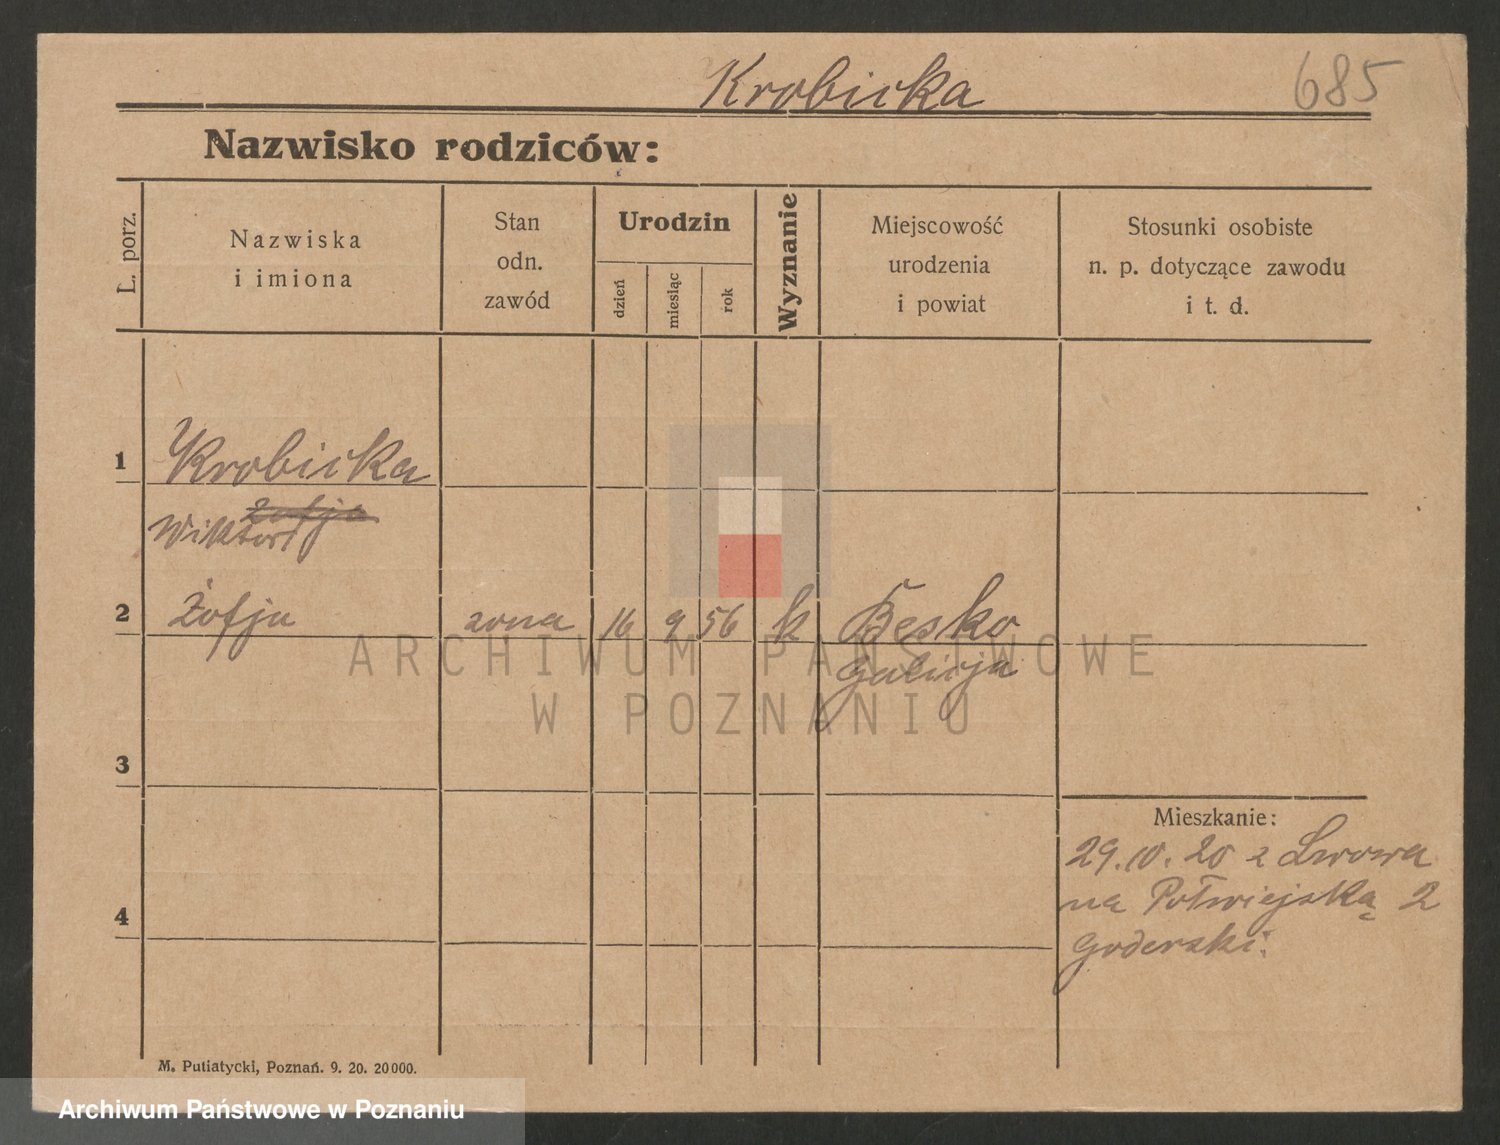 Krobicka
685
Nazwisko rodziców:
L. porz.
Nazwiska
i imiona
Stan
odn.
zawód
Urodzin
dzień
miesiąc
rok
Wyznanie
Miejscowość
urodzenia
i powiat
Stosunki osobiste
n. p. dotyczące zawodu
i t. d.
1 Krobicka
Zofja
Wiktor
2 Zofja zona 16 9 56 k Besko
Galicja
ARCHIWUM PAŃSTWOWE
W POZNANIU
3
Mieszkanie:
29.10.20 z Lwowa
na Półwiejską 2
Goderski.
4
M. Putiatycki, Poznań. 9. 20. 20000.
Archiwum Państwowe w Poznaniu